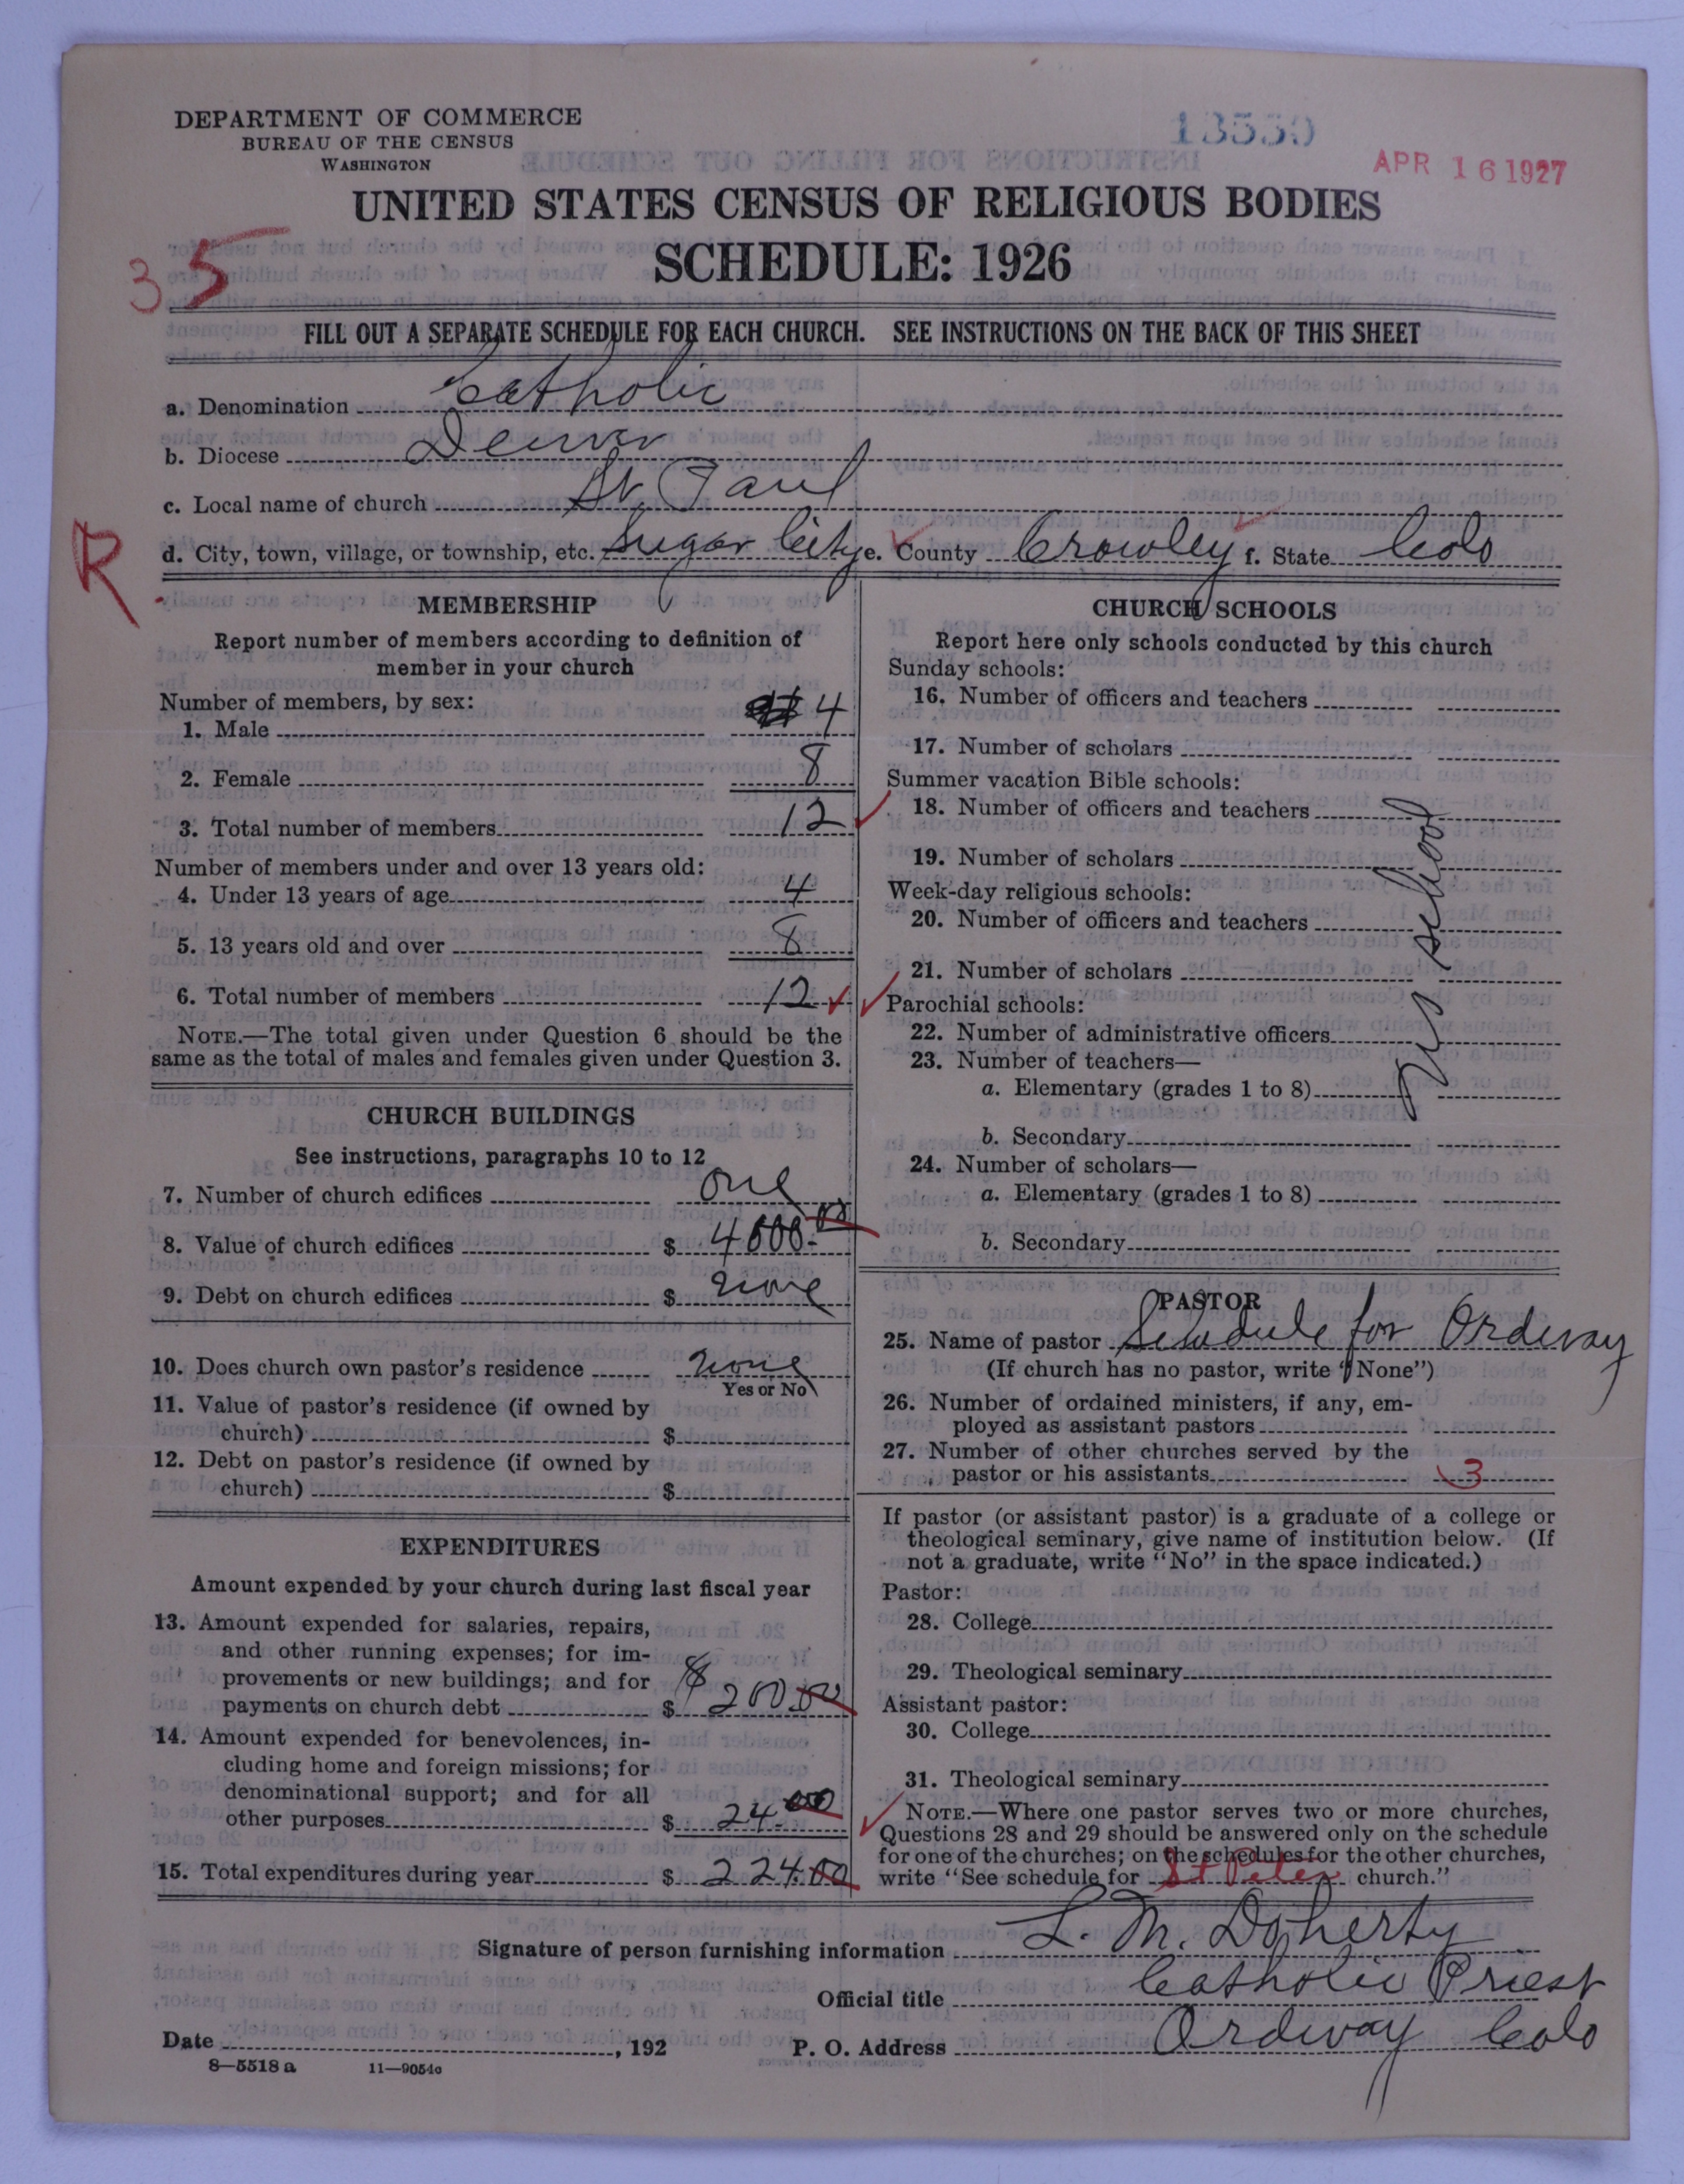 DEPARTMENT OF COMMERCE
BUREAU OF THE CENSUS
WASHINGTON
APR 16 1927
UNITED STATES CENSUS OF RELIGIOUS BODIES
SCHEDULE: 1926
35
FILL OUT A SEPARATE SCHEDULE FOR EACH CHURCH. SEE INSTRUCTIONS ON THE BACK OF THIS SHEET
a. Denomination Catholic
b. Diocese Denver
c. Local name of church St. Paul
R
d. City, town, village, or township, etc. Sugar City e. County Crowley f. State Colo
MEMBERSHIP
Report number of members according to definition of
member in your church
Number of members, by sex:
1. Male 4
2. Female 8
3. Total number of members 12
Number of members under and over 13 years old:
4. Under 13 years of age 4
5. 13 years old and over 8
6. Total number of members 12
NOTE.—The total given under Question 6 should be the
same as the total of males and females given under Question 3.
CHURCH BUILDINGS
See instructions, paragraphs 10 to 12
7. Number of church edifices one
8. Value of church edifices $ 4000.00
9. Debt on church edifices $ none
10. Does church own pastor's residence none
Yes or No
11. Value of pastor's residence (if owned by
church) $
12. Debt on pastor's residence (if owned by
church) $
EXPENDITURES
Amount expended by your church during last fiscal year
13. Amount expended for salaries, repairs,
and other running expenses; for im-
provements or new buildings; and for
payments on church debt $ 200.00
14. Amount expended for benevolences, in-
cluding home and foreign missions; for
denominational support; and for all
other purposes $ 24.00
15. Total expenditures during year $ 224.00
CHURCH SCHOOLS
Report here only schools conducted by this church
Sunday schools:
16. Number of officers and teachers
17. Number of scholars
Summer vacation Bible schools:
18. Number of officers and teachers
19. Number of scholars
Week-day religious schools:
20. Number of officers and teachers
21. Number of scholars
Parochial schools:
22. Number of administrative officers
23. Number of teachers—
a. Elementary (grades 1 to 8)
b. Secondary
24. Number of scholars—
a. Elementary (grades 1 to 8)
b. Secondary
No school
PASTOR
25. Name of pastor Schedule for Ordway
(If church has no pastor, write "None")
26. Number of ordained ministers, if any, em-
ployed as assistant pastors
27. Number of other churches served by the
pastor or his assistants 3
If pastor (or assistant pastor) is a graduate of a college or
theological seminary, give name of institution below. (If
not a graduate, write "No" in the space indicated.)
Pastor:
28. College
29. Theological seminary
Assistant pastor:
30. College
31. Theological seminary
NOTE.—Where one pastor serves two or more churches,
Questions 28 and 29 should be answered only on the schedule
for one of the churches; on the schedules for the other churches,
write "See schedule for St Peter church."
Signature of person furnishing information L. M. Doherty
Official title Catholic Priest
Date , 192 P. O. Address Ordway Colo
8—5518 a 11—9054c